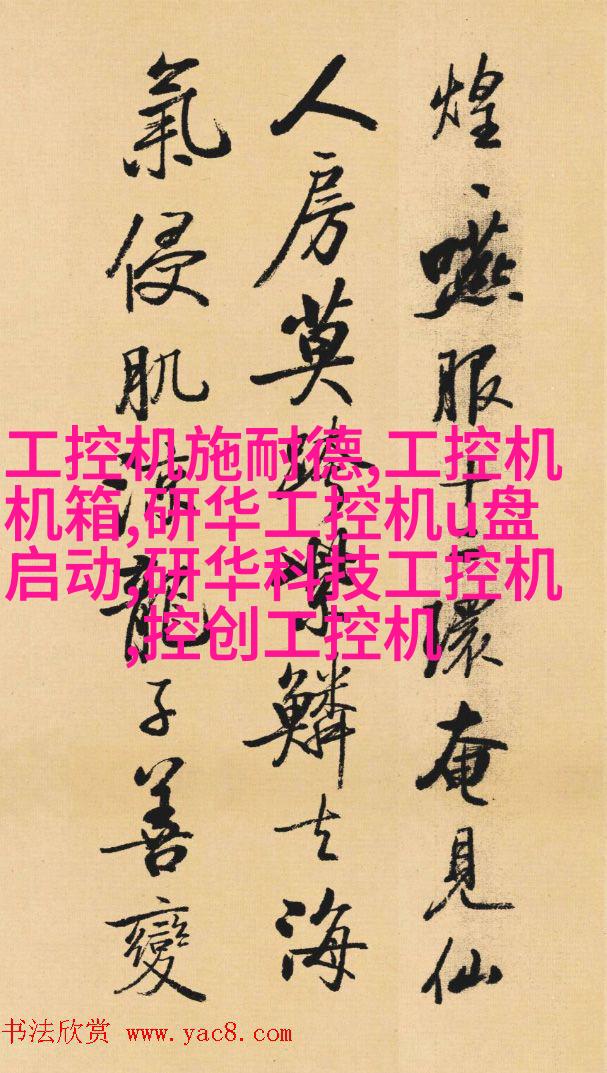 煌、嚥服十二環奄見仙
人房莫跨紫鱗去海
氣侵肌涼龍子善變
工控机施耐德,工控机
机箱,研华工控机u盘
启动,研华科技工控机
,控创工控机
书法欣赏 www.yac8.com